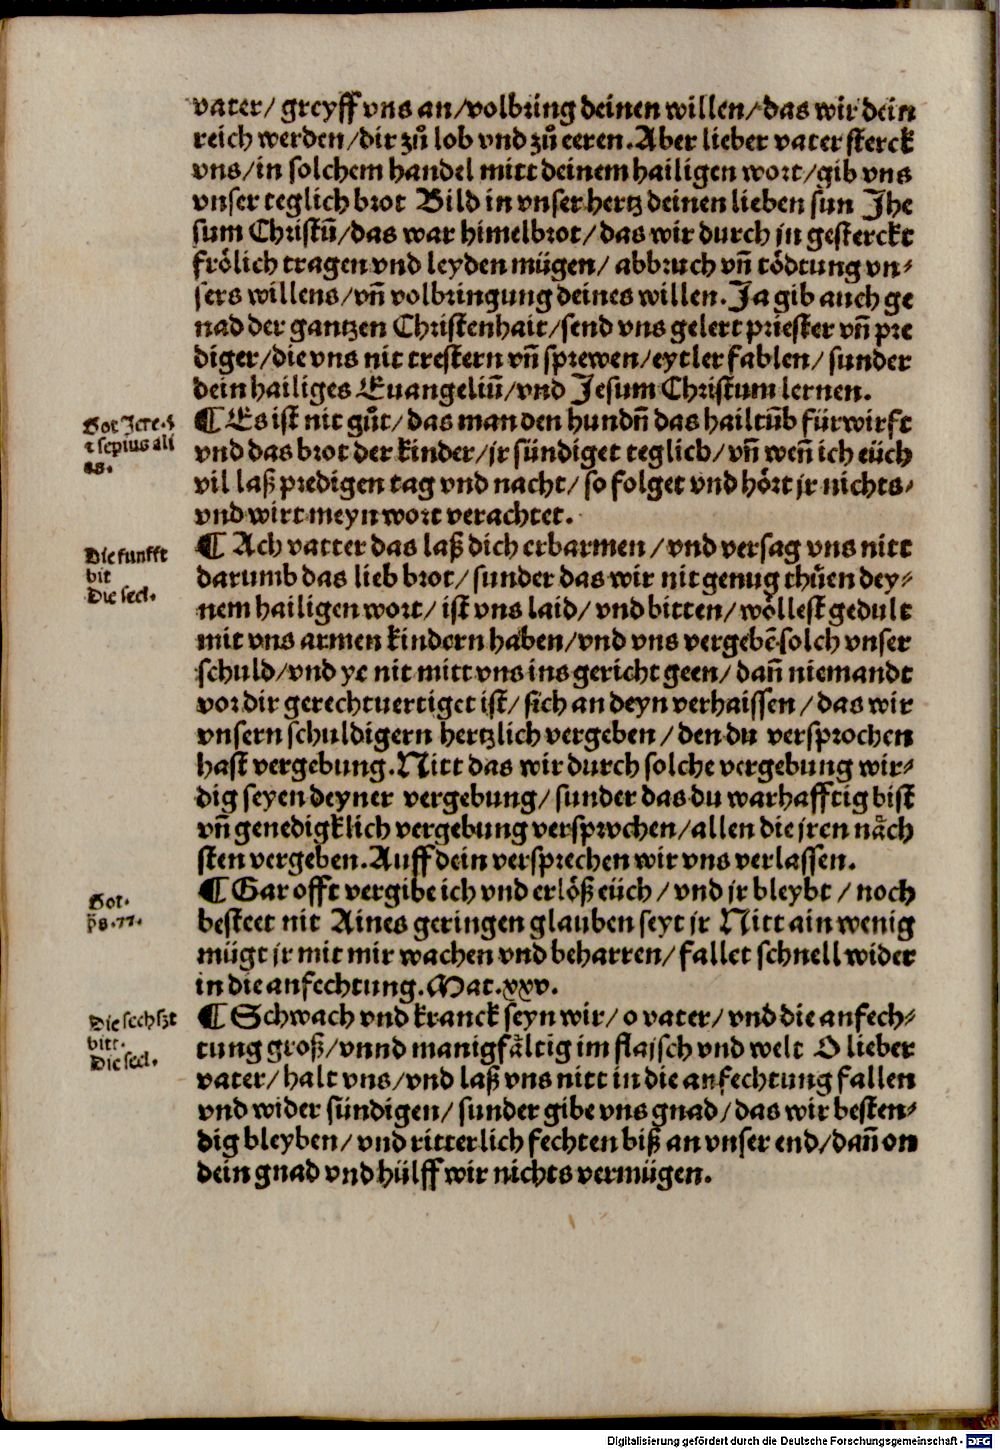 vater/ greyff vns an/volbring deinen willen/das wir dein
reich werden/dir zů lob vnd zů eeren.Aber lieber vater sterck
vns/in solchem handel mitt deinem hailigen wort/gib vns
vnser teglich brot Bild in vnser hertz deinen lieben sun Jhe
sum Christū/das war himelbrot/das wir durch jn gesterckt
frölich tragen vnd leyden mügen/ abbruch vñ tödtung vn-
sers willens/vñ volbringung deines willen.Ja gib auch ge
nad der gantzen Christenhait/send vns gelert priester vñ pre
diger/die vns nit trestern vñ sprewen/eytler fablen/ sunder
dein hailiges Euangeliū/vnd Jesum Christum lernen.
Got Jere.5
⁊ sepius ali
as.
¶ Es ist nit gůt/ das man den hundñ das hailtūb fürwirft
vnd das brot der kinder/jr sündiget teglich/vñ weñ ich eüch
vil laß predigen tag vnd nacht/ so folget vnd hört jr nichts/
vnd wirt meyn wort verachtet.
Die funfft
bit
Die seel.
¶ Ach vatter das laß dich erbarmen /vnd versag vns nitt
darumb das lieb brot/sunder das wir nit genug thůen dey-
nem hailigen wort/ ist vns laid/ vnd bitten/wöllest gedult
mit vns armen kindern haben/vnd vns vergebē solch vnser
schuld/vnd ye nit mitt vns ins gericht geen/ dañ niemandt
vor dir gerechtuertiget ist/ sich an deyn verhaissen /das wir
vnsern schuldigern hertzlich vergeben /den du versprochen
hast vergebung.Nitt das wir durch solche vergebung wir-
dig seyen deyner vergebung/ sunder das du warhafftig bist
vñ genedigklich vergebung versprochen/allen die jren näch
sten vergeben.Auff dein versprechen wir vns verlassen.
Got.
ps.77.
¶ Gar offt vergibe ich vnd erlöß eüch / vnd jr bleybt / noch
besteet nit Aines geringen glauben seyt jr Nitt ain wenig
mügt jr mit mir wachen vnd beharren/fallet schnell wider
in die anfechtung.Mat.xxv.
Die sechßt
bitt.
Die seel.
¶ Schwach vnd kranck seyn wir/ o vater/ vnd die anfech-
tung groß/vnnd manigfältig im flajsch vnd welt O lieber
vater/halt vns/vnd laß vns nitt in die anfechtung fallen
vnd wider sündigen/sunder gibe vns gnad/das wir besten-
dig bleyben/ vnd ritterlich fechten biß an vnser end/dañ on
dein gnad vnd hülff wir nichts vermügen.
Digitalisierung gefördert durch die Deutsche Forschungsgemeinschaft - DFG